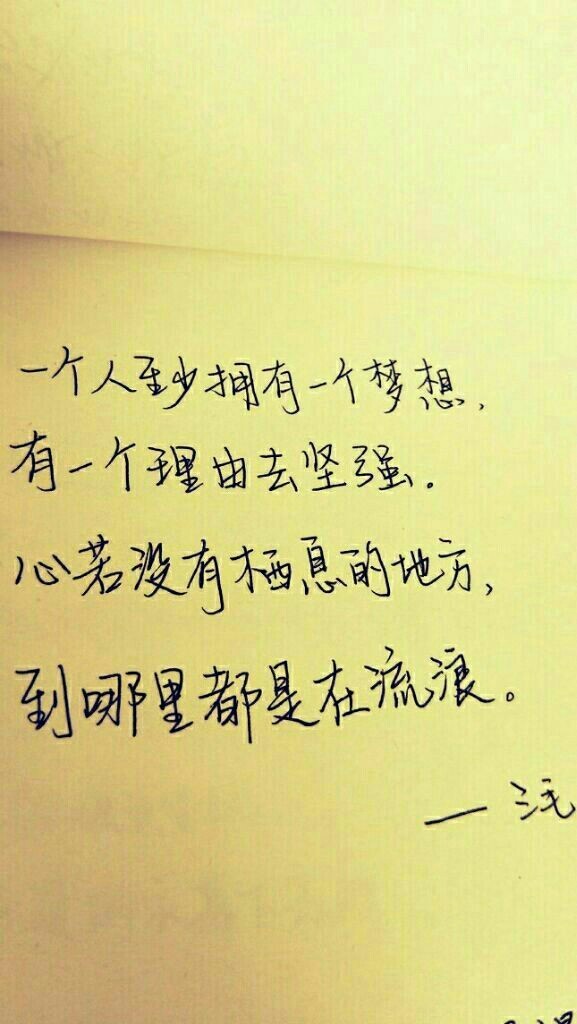 一个人至少拥有一个梦想,
有一个理由去坚强.
心若没有栖息的地方,
到哪里都是在流浪。
— 三毛